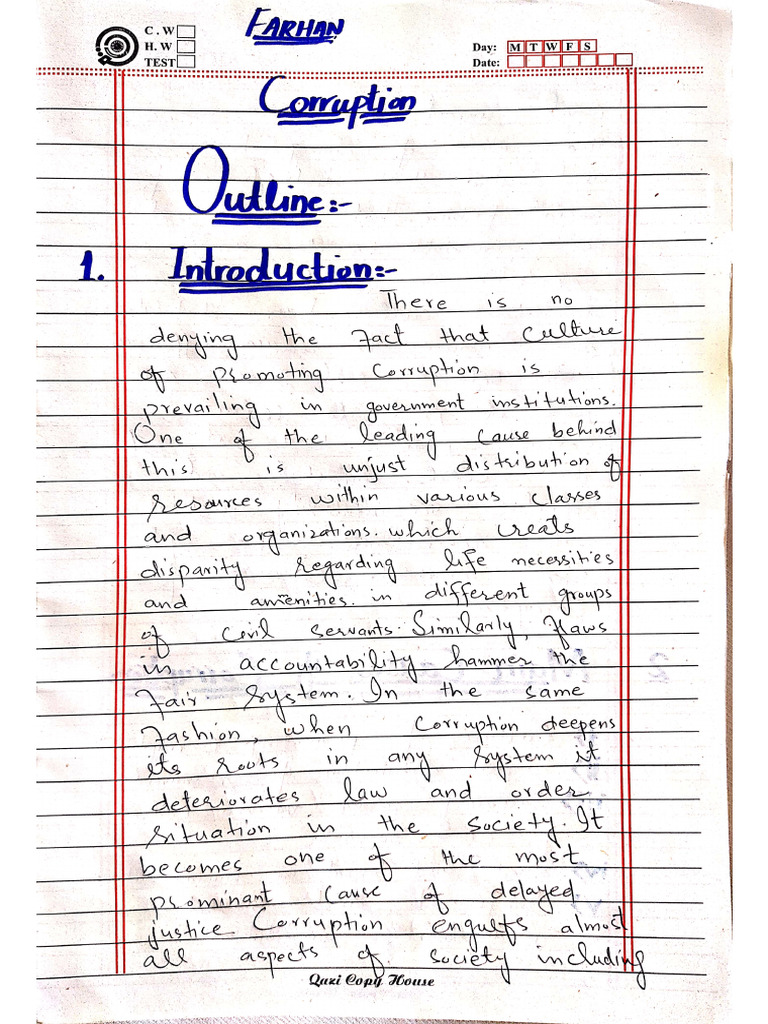 FARHAN
C. W
H. W
TEST
Day: M T W F S
Date:
Corruption
Outline:-
1. Introduction:-
There is no
denying the fact that culture
of promoting Corruption is
prevailing in government institutions.
One of the leading cause behind
this is unjust distribution of
resources within various classes
and organizations. which creats
disparity regarding life necessities
and amenities. in different groups
of civil servants. Similarly, flaws
in accountability hammer the
fair system. In the same
fashion, when corruption deepens
its roots in any system it
deteriorates law and order
situation in the society. It
becomes one of the most
prominant cause of delayed
justice Corruption engulfs almost
all aspects of society including
Quzi Copy House